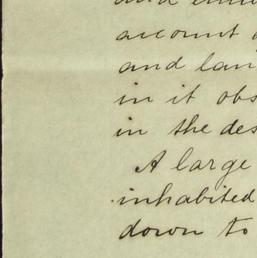 account
and lan
in it obs
in the des
A large
inhabited
down to